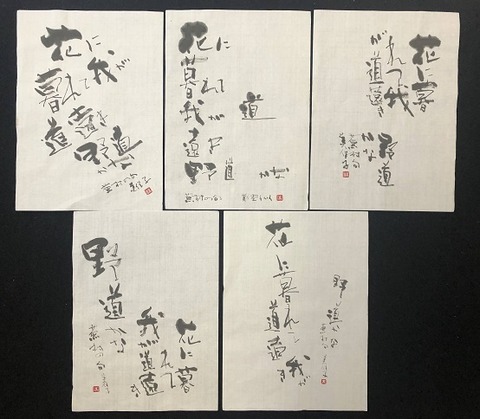 花に
暮れて我が
道遠き野道
かな
蕪村の句
花に
暮れて
我が
道
遠き
野道
かな
蕪村の句
花に暮
れて我
が道遠き
野道
かな
蕪村句
花に暮
れて
我が道遠き
野道かな
蕪村の句
花
に暮れて
我が
道遠き
野道かな
蕪村の句